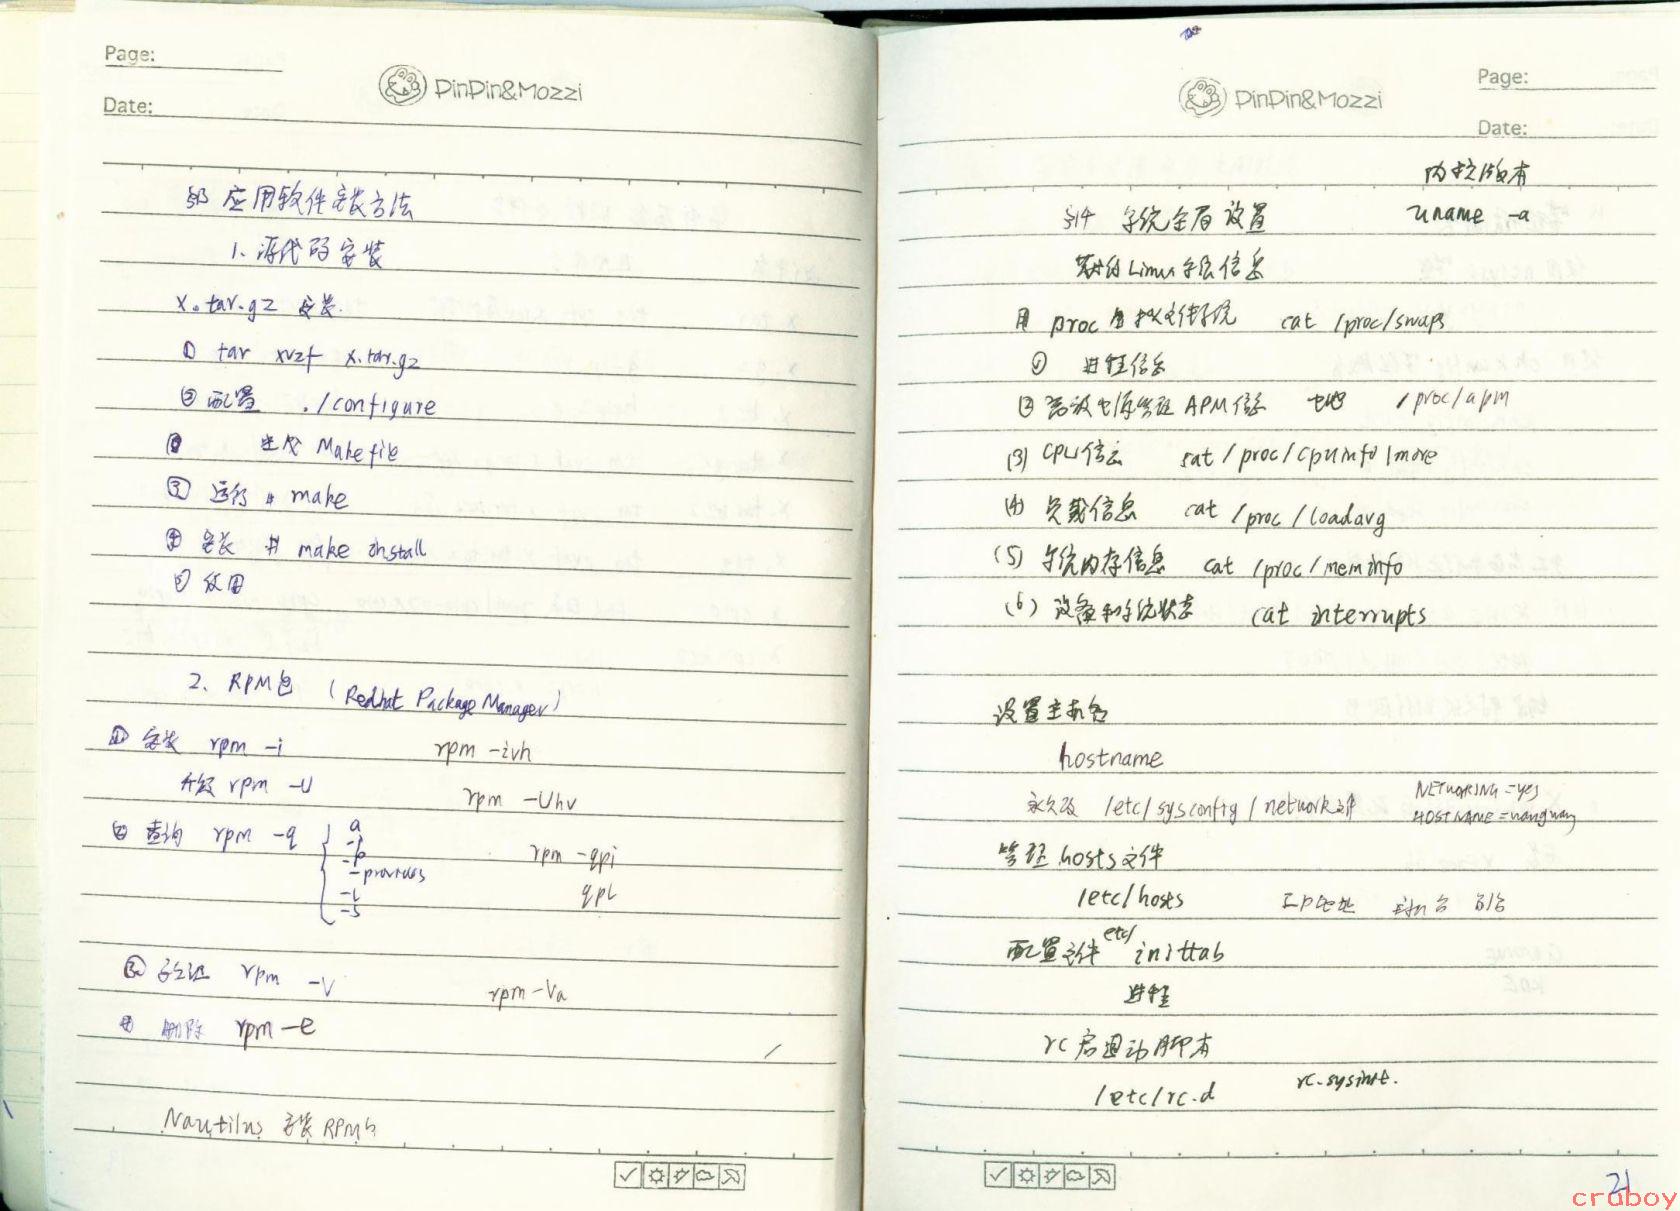 Page:
DinDin&Mozzi
Date:
应用软件安装方法
1、源代码安装
x.tar.gz 安装
① tar xvzf x.tar.gz
② 配置 ./configure
生成 Makefile
③ 运行 # make
④ 安装 # make install
⑤ 使用
2、RPM包 (Redhat Package Manager)
① 安装 rpm -i rpm -ivh
升级 rpm -U rpm -Uhv
② 查询 rpm -q { a
-p
-provides
-l
-s
rpm -qpi
qpl
③ 验证 rpm -V rpm-Va
④ 删除 rpm -e
Nautilus 安装 RPM包
Page:
DinDin&Mozzi
Date:
内核版本
§14 系统全局设置 uname -a
Linux系统信息
用 proc 虚拟文件系统 cat /proc/swaps
① 进程信息
② 高级电源管理 APM信息 /proc/apm
(3) CPU信息 cat /proc/cpuinfo |more
(4) 负载信息 cat /proc/loadavg
(5) 系统内存信息 cat /proc/meminfo
(6) 设备和系统状态 cat interrupts
设置主机名
hostname
永久改 /etc/sysconfig/network
NETWORKING=yes
HOSTNAME=wangwang
管理 hosts文件
/etc/hosts IP地址 主机名 别名
配置文件 etc/inittab
进程
rc启动脚本
/etc/rc.d rc.sysinit.
21
cruboy